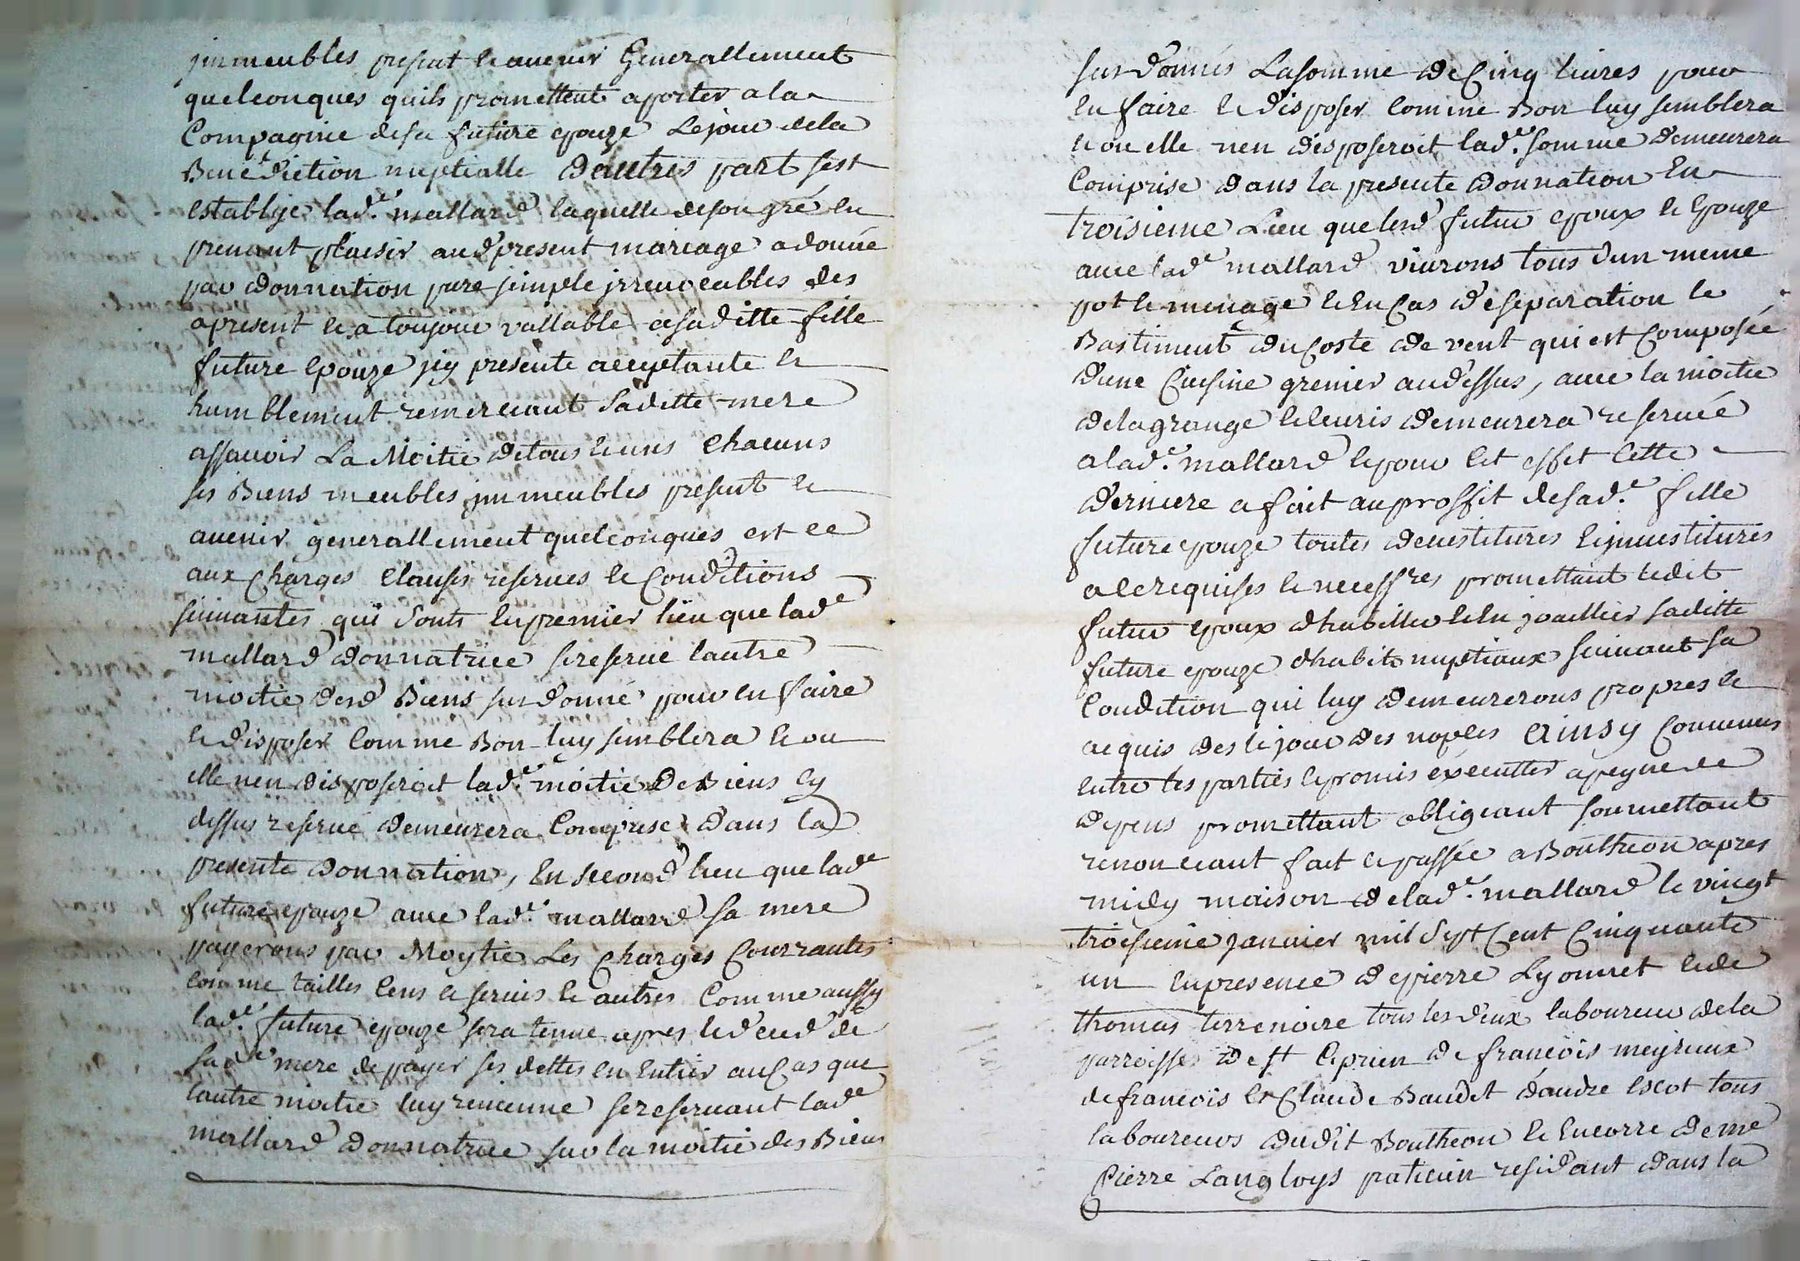 jmmeubles presat et avenir Generallement
quelconques quils promettent aporter a la
Compagnie desa future epouze Lejour dela
Benediction nuptialle Dautres part sest
establye lad.e mallard laquelle deson gré en
prenant plaisir aud present mariage adonné
par donnation pure simple jrrevocables des
apresent et a toujour vallable asaditte fille
future Epouze jcy presente acceptante et
humblement remerciant Saditte mere
assavoir La Moitié detous et uns Chacuns
ses Biens meubles jmmeubles present et
avenir generallement quelconques est ce
aux Charges Clauses reserves et Conditions
suivantes qui Sonts En premier lieu que lad.e
mallard donnatrice se reserve lautre
moitié desd Biens sus donné pour en faire
et disposer Comme Bon luy semblera et ou
elle nen disposeroit lad.e moitié De Biens Cy
dessus reservé demeurera Comprise dans la
presente donnation, En second lieu que lad.e
future epouze avec lad.e mallard sa mere
payerons par Moytié Les Charges Courrantes
comme tailles Cens et servis et autres Comme aussy
lad.e future epouze sera tenue apres le deced de
sad.e mere de payer ses dettes en Entier au Cas que
lautre moitié luy revienne se reservant lad.e
mallard donnatrice sur la moitié des Biens
sus donnés La somme de Cinq livres pour
En faire et disposer Comme Bon luy semblera
et ou elle nen disposeroit lad.e somme demeurera
Comprise dans la presente donnation En
troisieme Lieu que lesd futur epoux et Epouze
avec lad.e mallard vivrons tous dun meme
pot et menage et En Cas deseparation le
Bastiment du Costé de vent qui est Composée
dune Cuisine grenier au dessus, avec la moitié
dela grange et Ecuris demeurera reservée
a lad.e mallard et pour Cet effet Cette
derniere a fait au proffit desad.e fille
future epouze toutes devestitures et jnvestitures
a ce requises et necessres promettant ledit
futur epoux dhabiller et en joaillier saditte
future epouze dhabits nuptiaux suivant sa
Condition qui luy demeurerons propres et
acquis des le jour des nopces Ainsy Convenus
Entre les parties et promis executter apeyne de
depens promettant obligeant soumettant
renonciant fait et passée a Boutheon apres
midy maison de lad.e mallard le vingt
troisieme janvier mil Sept Cent Cinquante
un En presence de pierre Lyonnet et de
thomas terrenoire tous les deux laboureur dela
parroisse de st Ciprien de francois meyrieux
de francois et Claude Baudet dandre escot tous
laboureurs dudit Boutheon et Encorre de me
Pierre Langloys paticien residant dans la